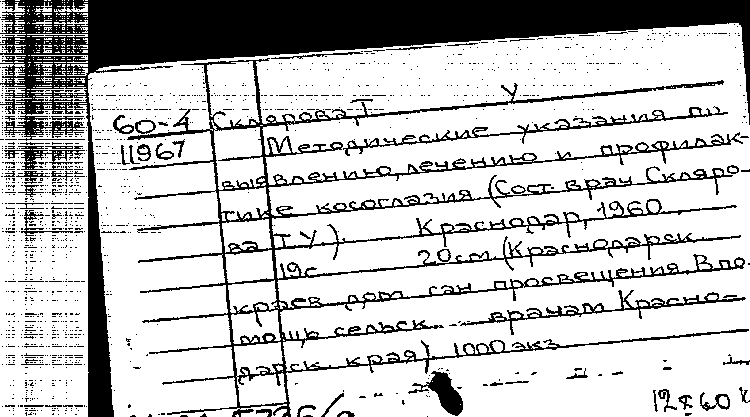 60-4 Склярова, Т У
11967 Методические указания по
выявлению, лечению и профилак-
тике косоглазия (Сост. врач Скляро-
ва Т.У.). Краснодар, 1960.
19с 20см. (Краснодарск.
краев. дом сан просвещения. В по-
мощь сельск. врачам Красно-
дарск. края). 1000 экз